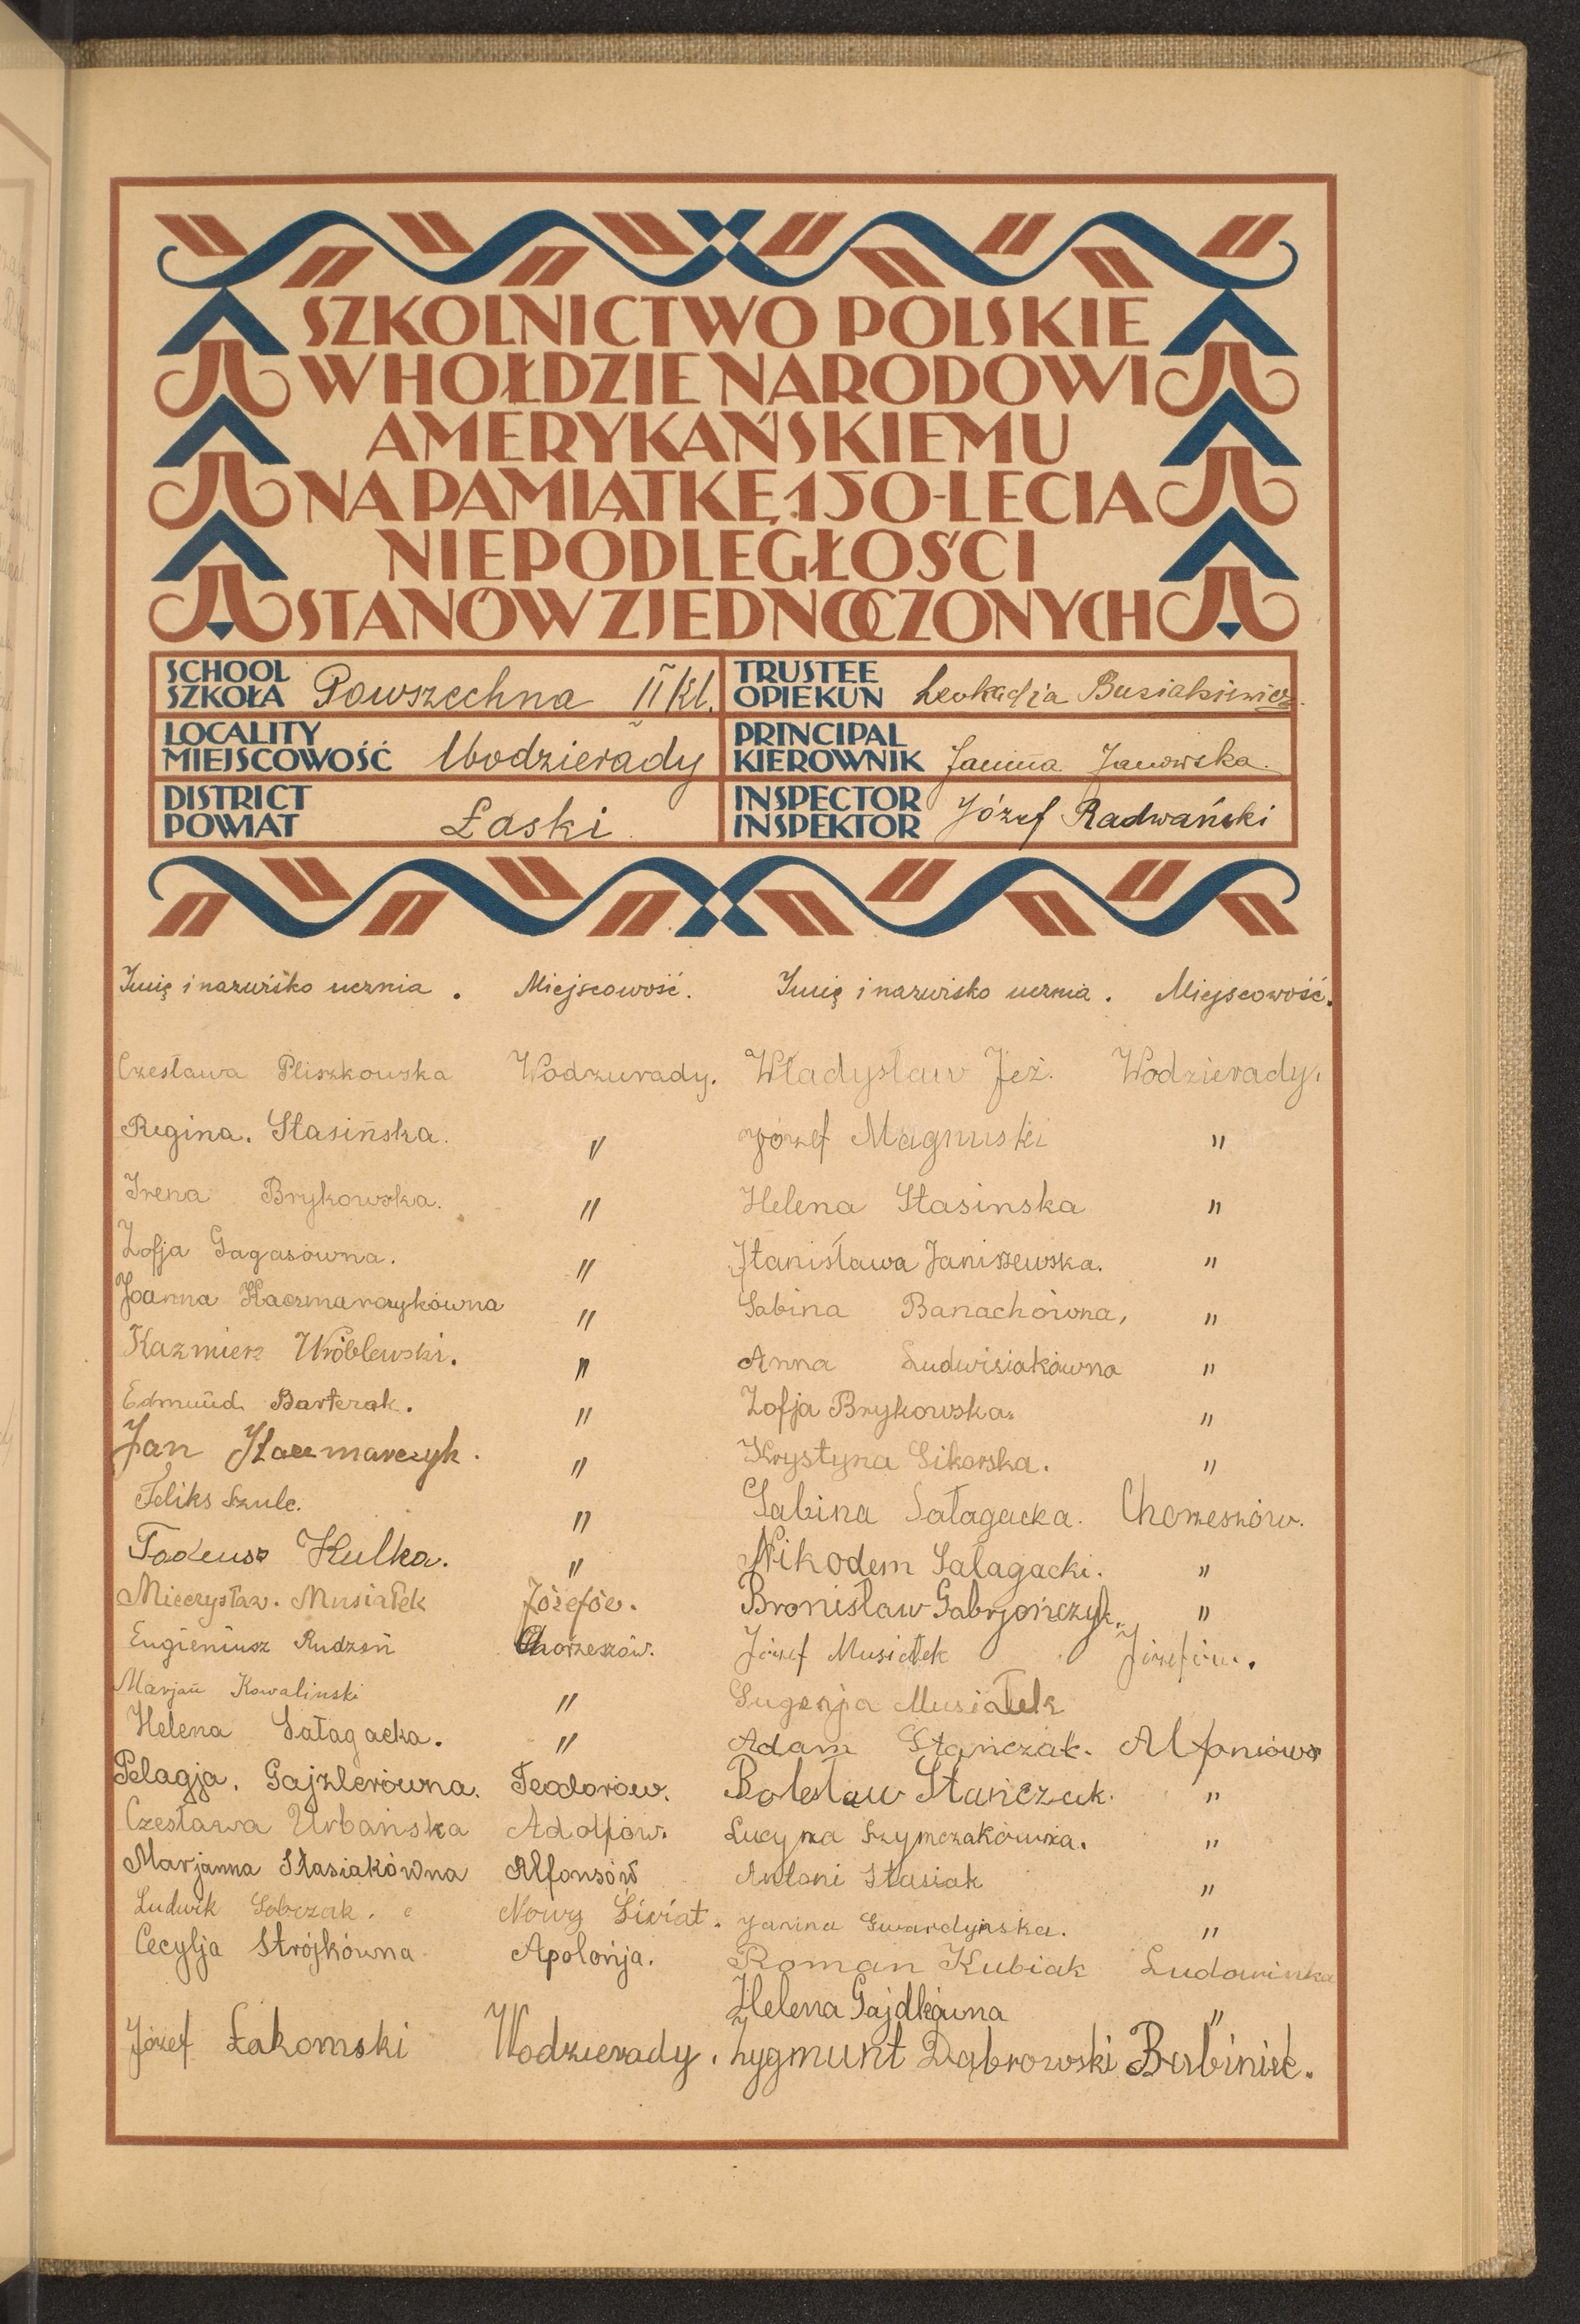 SZKOLNICTWO POLSKIE
W HOŁDZIE NARODOWI
AMERYKAŃSKIEMU
NA PAMIĄTKĘ 150-LECIA
NIEPODLEGŁOŚCI
STANÓW ZJEDNOCZONYCH
SCHOOL
SZKOŁA Powszechna II kl.
TRUSTEE
OPIEKUN Leokadja Busiakiewicz.
LOCALITY
MIEJSCOWOŚĆ Wodzierady
PRINCIPAL
KIEROWNIK Janina Janowska.
DISTRICT
POWIAT Łaski
INSPECTOR
INSPEKTOR Józef Radwański
Imię i nazwisko ucznia. Miejscowość. Imię i nazwisko ucznia. Miejscowość.
Czesława Pliszkowska Wodzierady. Władysław Jeż. Wodzierady.
Regina. Stasińska. " Józef Magnuski "
Irena Brykowska. " Helena Stasinska "
Zofja Gagasówna. " Stanisława Janiszewska. "
Joanna Kaczmarczykówna " Sabina Banachówna, "
Kazmierz Wróblewski. " Anna Ludwisiakówna "
Edmund Barterak. " Zofja Brykowska. "
Jan Kaczmarczyk. " Krystyna Sikorska. "
Feliks Szulc. " Sabina Sałagacka. Chorzeszów.
Tadeusz Kulka. " Nikodem Sałagacki. "
Mieczysław. Musiałek Józefów. Bronisław Gabrjończyk. "
Eugieniusz Rudzeń Chorzeszów. Józef Musiałek Józefów.
Marjan Kowalinski " Eugenja Musiałek
Helena Sałagacka. " Adam Stańczak. Alfonsów
Pelagja. Gajzlerówna. Teodorów. Bolesław Stańczak. "
Czesława Urbańska Adolfów. Lucyna Szymczakówna. "
Marjanna Stasiakówna Alfonsów Antoni Stasiak "
Ludwik Sobczak. Nowy Świat. Janina Gwardyńska. "
Cecylja Strójkówna Apolonja. Roman Kubiak Ludowinka
Helena Gajdkówna "
Józef Łakomski Wodzierady. Zygmunt Dąbrowski Berbiniek.